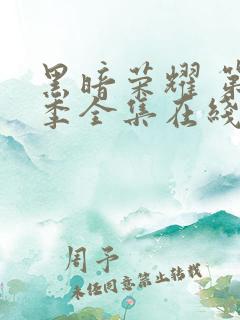 黑暗荣耀 第
季全集在线
周予
未经同意禁止转载